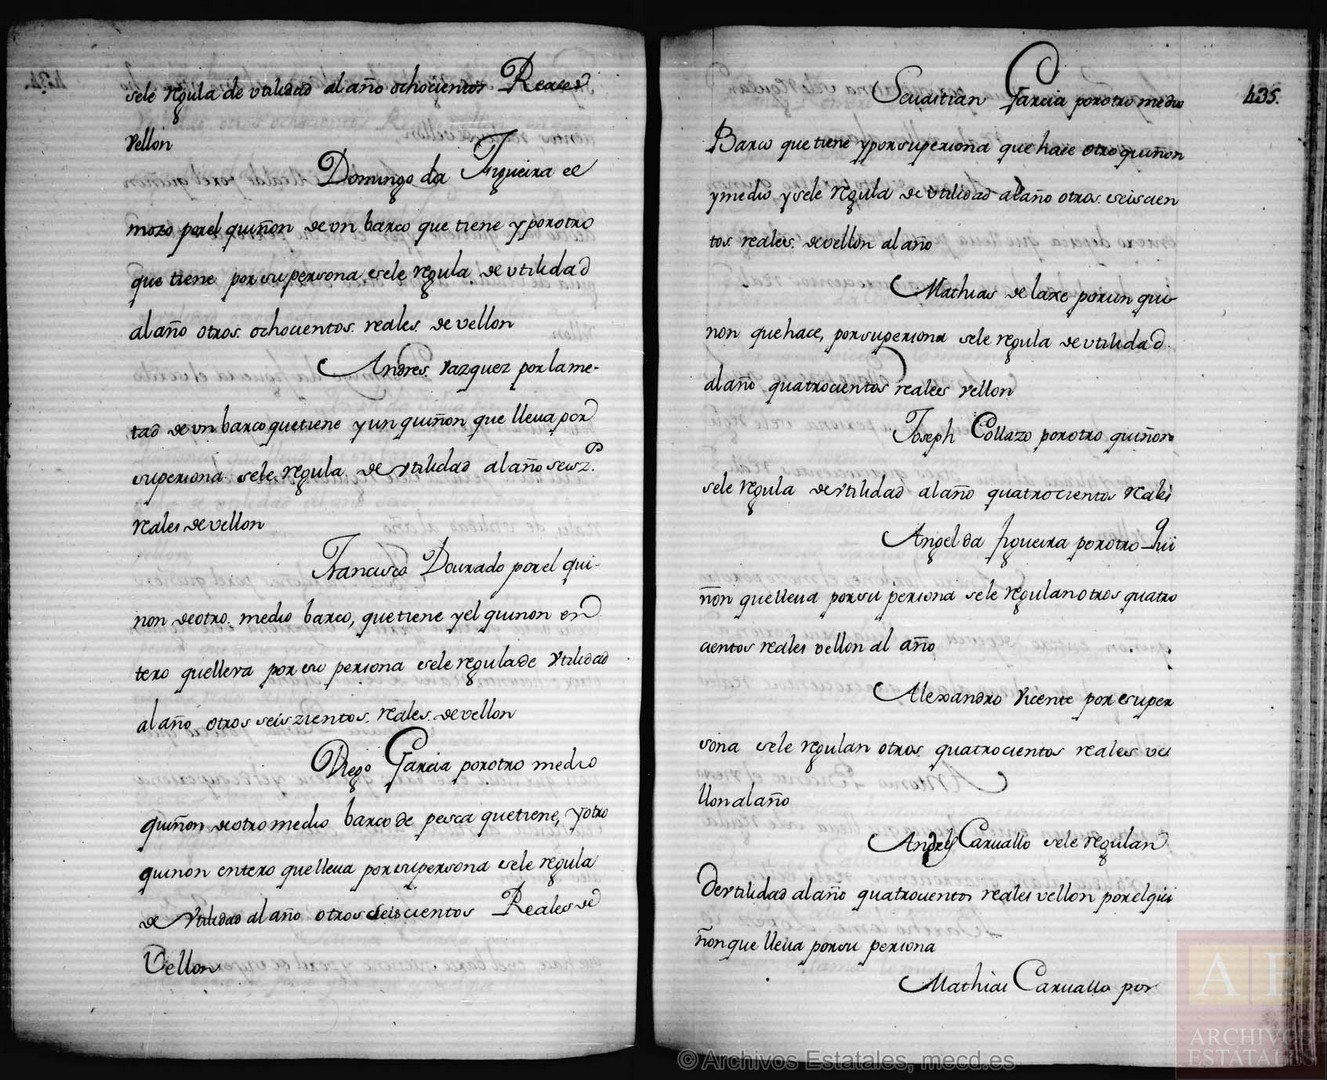 sele regula de vtilidad al año ochocientos Reales
vellon
Domingo da Figueira el
mozo porel quiñon de vn barco que tiene y porotro
que tiene por su persona, sele regula de vtilidad
al año otros ochocientos reales de vellon
Andres Vazquez por lame-
tad de vn barco quetiene y un quiñon que lleua por
su persona sele regula de vtilidad al año seisz.os
reales de vellon
Francisco Dourado por el qui-
non de otro medio barco, que tiene y el quinon en
tero quelleva por su persona sele regula de vtilidad
al año otros seiszientos reales de vellon
Diego Garcia porotro medio
quiñon de otro medio barco de pesca quetiene, y otro
quinon entero quelleua por su persona sele regula
de vtilidad al año otros seiscientos Reales de
Vellon
435.
Sevastian Garcia porotro medio
Barco que tiene y por su persona que hace otro quiñon
y medio y sele regula de vtilidad al año otros seiscien
tos reales de vellon al año
Mathias de laxe por un qui
non que hace, por su persona sele regula de vtilidad
al año quatrocientos reales vellon
Joseph Collazo por otro quiñon
sele regula de vtilidad al año quatrocientos reales
Angel da figueira porotro Qui
ñon quelleua por su persona sele regulan otros quatro
cientos reales vellon al año
Alexandro Vicente por su per
sona sele regulan otros quatrocientos reales ve
llon al año
Andres Caruallo sele regulan
De vtilidad al año quatrocientos reales vellon por el qui
ñon que lleua por su persona
Mathias Caruallo por
© Archivos Estatales, mecd.es
AE
ARCHIVOS
ESTATALES